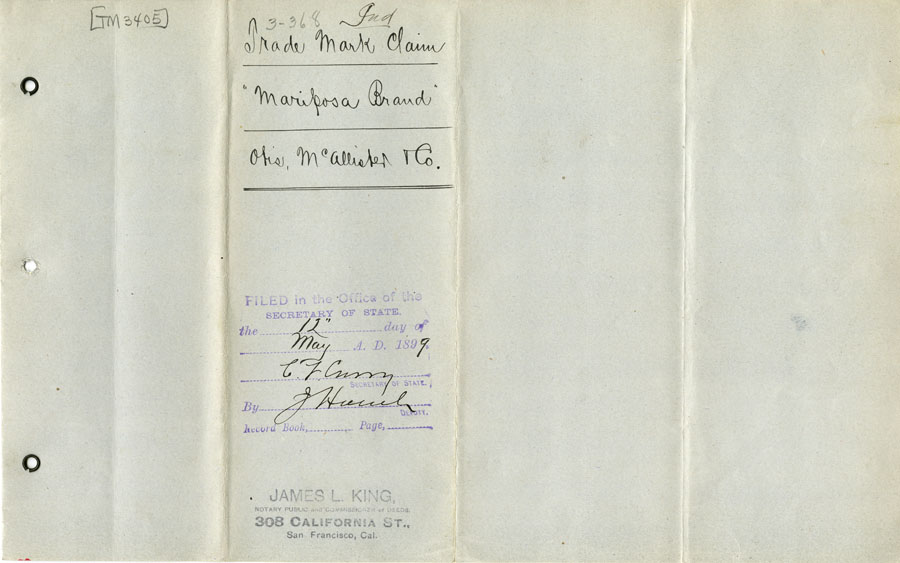 [TM3405]
3-368 Ind
Trade Mark Claim
"Mariposa Brand"
Otis, McAllister & Co.
FILED in the Office of the
SECRETARY OF STATE.
the 12" day of
May A. D. 1899
C F Curry
SECRETARY OF STATE.
By J Hoesch
DEPUTY.
Record Book, Page,
JAMES L. KING,
NOTARY PUBLIC AND COMMISSIONER OF DEEDS
308 CALIFORNIA ST.,
San. Francisco, Cal.